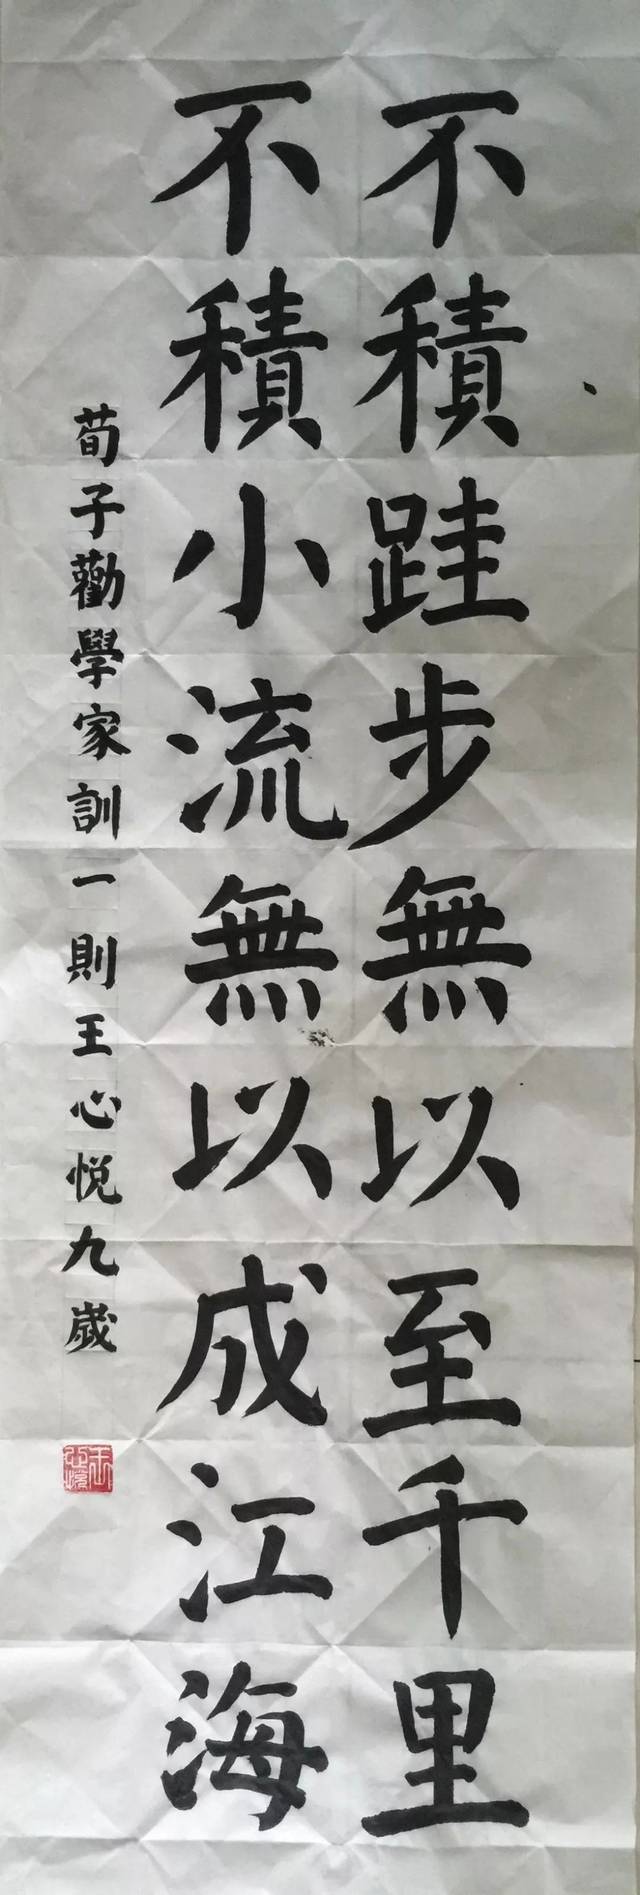 不積跬步無以至千里
不積小流無以成江海
荀子勸學家訓一則王心悦九歲
王心悦